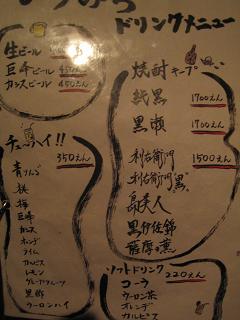 ドリンクメニュー
生ビール
巨峰ビール 450えん
カシスビール 450えん
チューハイ!!
350えん
青りんご
桃
梅
巨峰
カシス
ポンヂ
ライム
カルピス
レモン
グレープフルーツ
黒酢
ウーロンハイ
焼酎キープ
紙黒 1700えん
黒瀬 1700えん
利右衛門 1500えん
利右衛門黒
島美人
黒伊佐錦
薩摩の薫
ソフトドリンク 220えん
コーラ
ウーロン茶
オレンヂ
カルピス